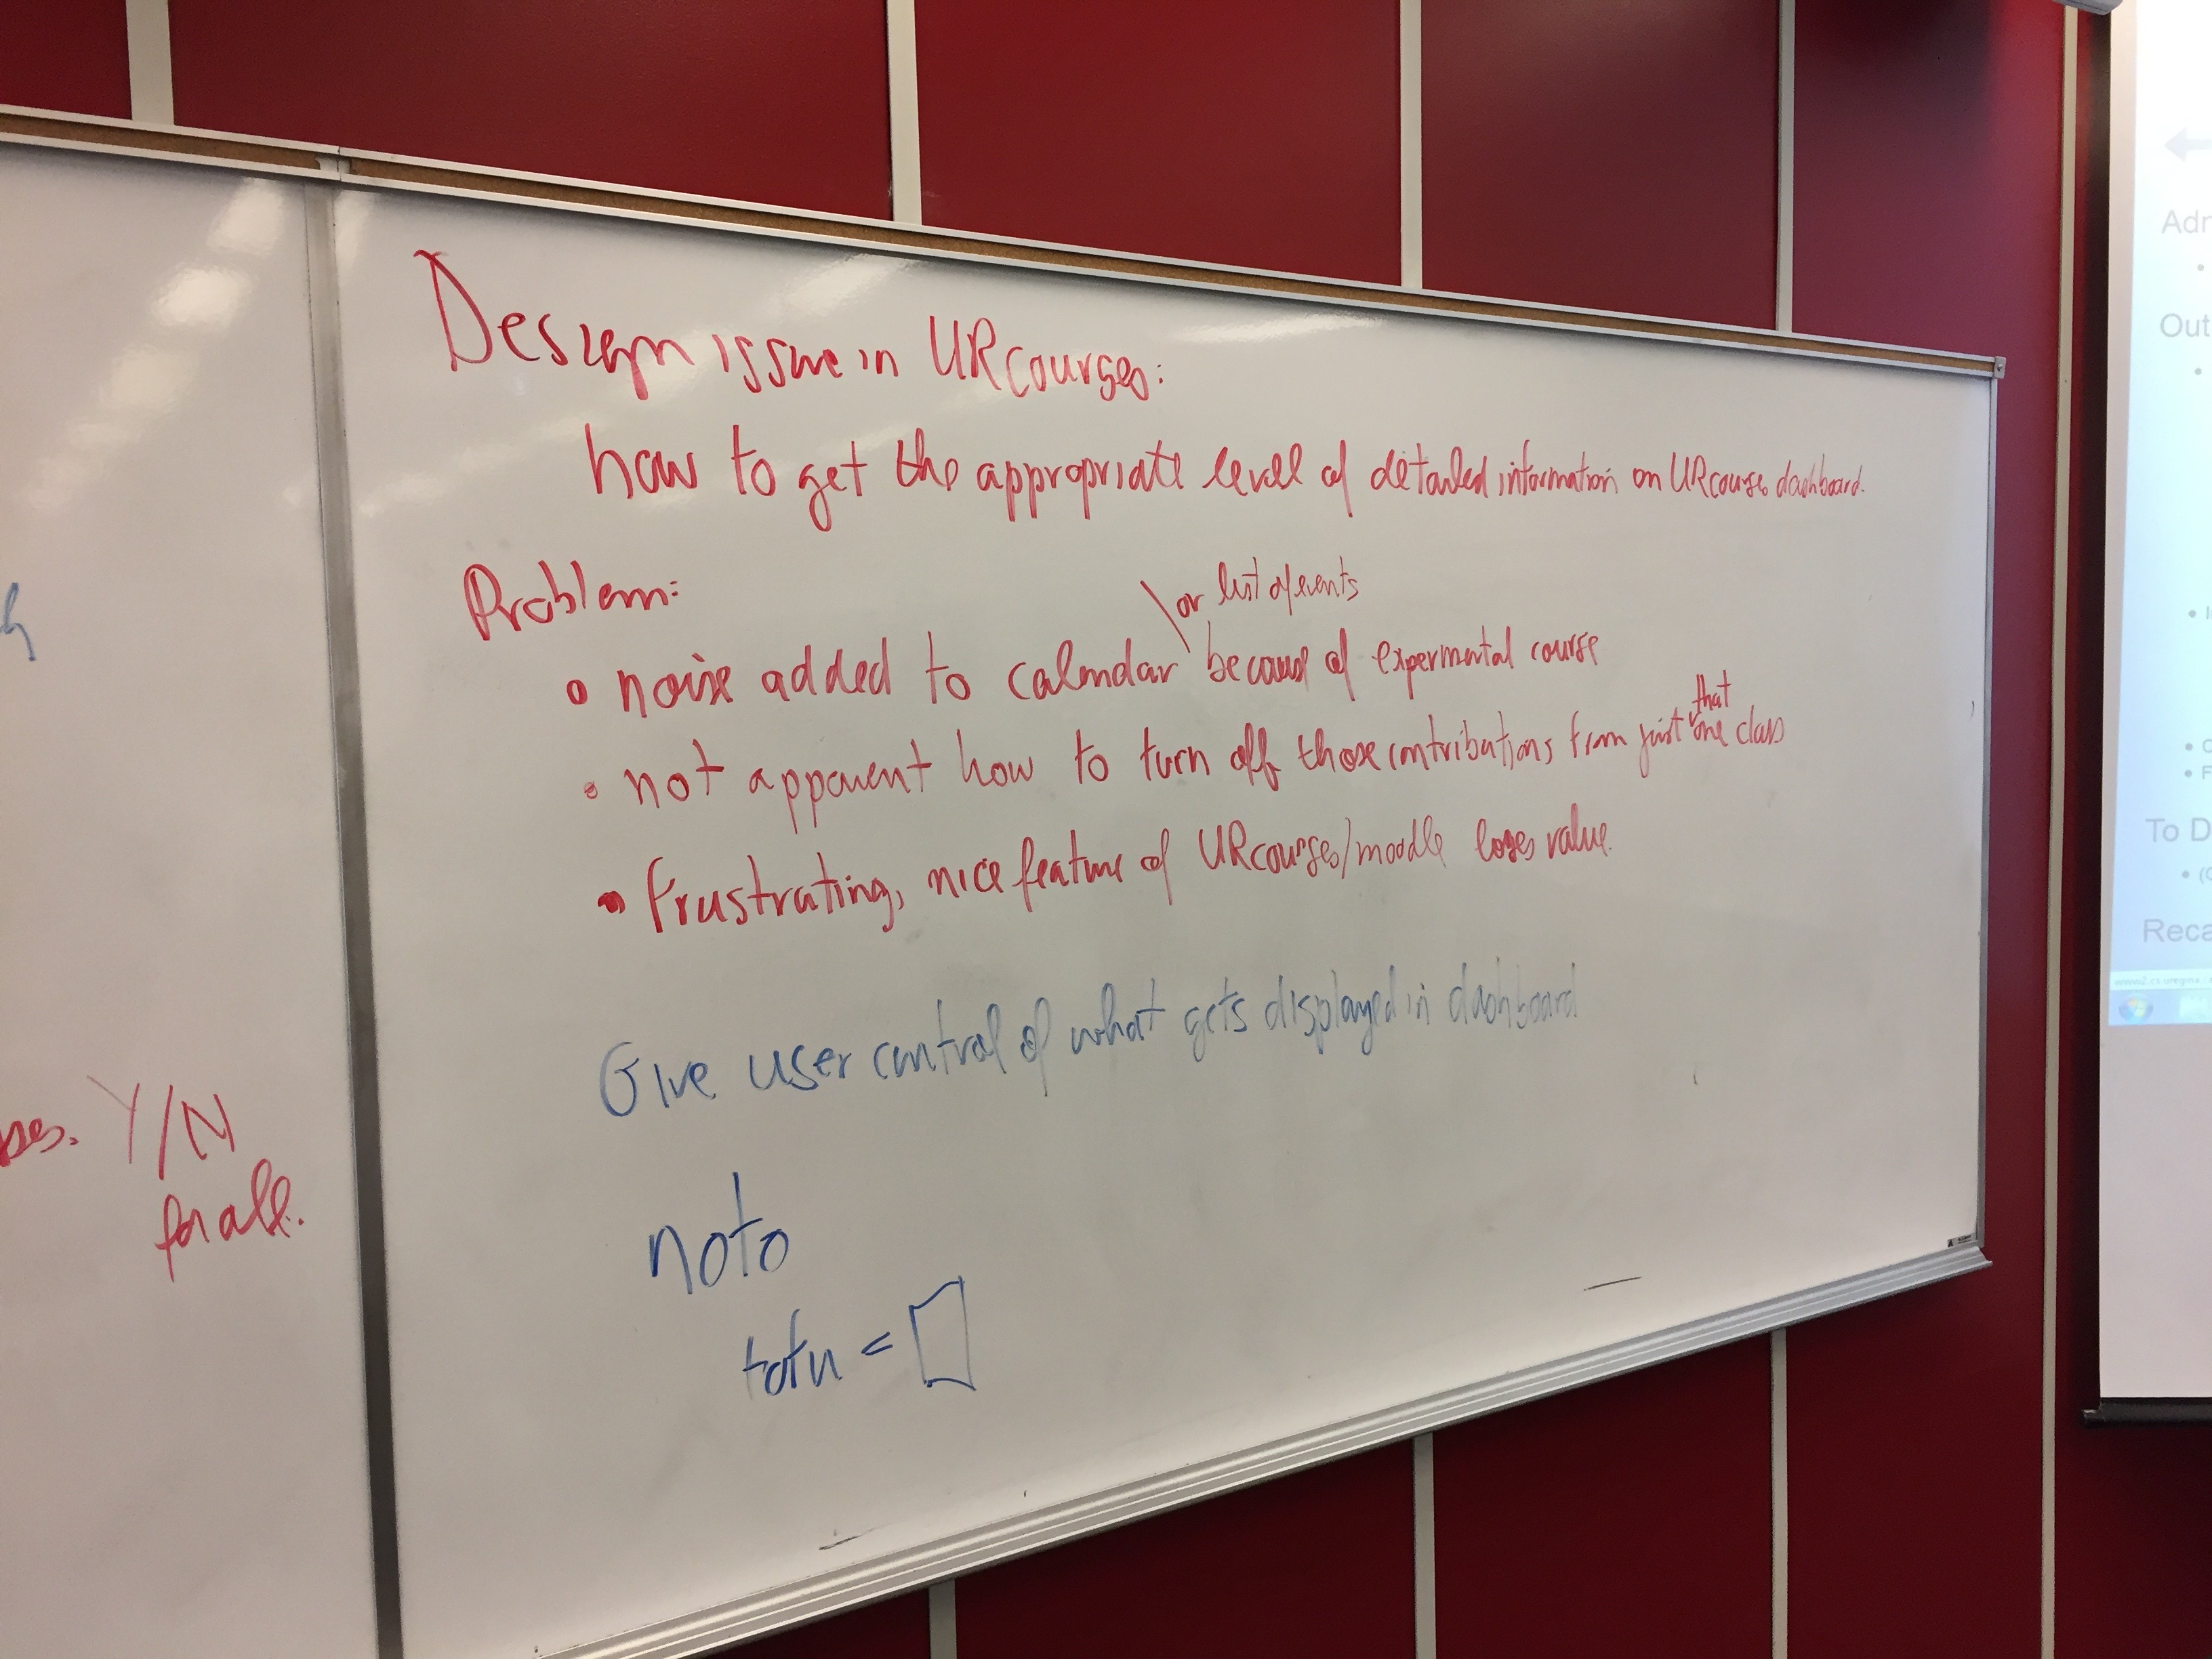 Design issue in URcourses:
how to get the appropriate level of detailed information on URcourses dashboard.
Problem:
or list of events
• noise added to calendar because of expermental course
that
• not apparent how to turn off those contributions from just one class
• frustrating, nice feature of URcourses/moodle loses value.
Give user control of what gets displayed in dashboard
noto
tofu =
Y/N
for all.
Adr
Out
To D
Reca
www2.cs.uregina